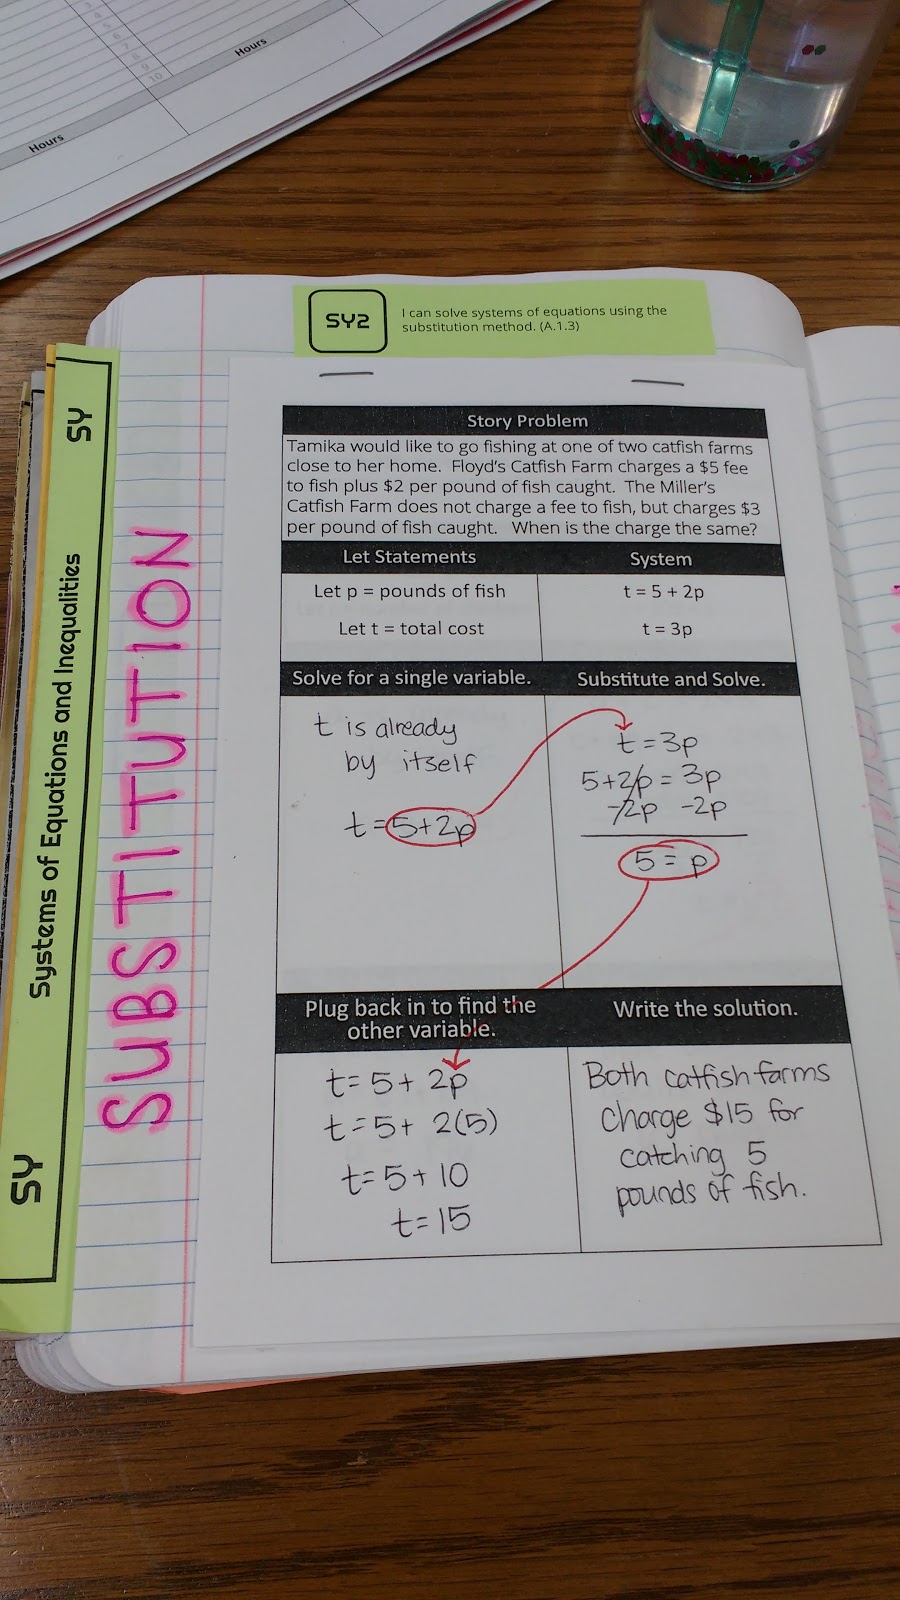 4
5
6
7
8
9
10
Hours
Hours
SY2
I can solve systems of equations using the
substitution method. (A.1.3)
SY
Systems of Equations and Inequalities
SY
SUBSTITUTION
Story Problem
Tamika would like to go fishing at one of two catfish farms
close to her home. Floyd's Catfish Farm charges a $5 fee
to fish plus $2 per pound of fish caught. The Miller's
Catfish Farm does not charge a fee to fish, but charges $3
per pound of fish caught. When is the charge the same?
Let Statements
System
Let p = pounds of fish
t = 5 + 2p
Let t = total cost
t = 3p
Solve for a single variable.
Substitute and Solve.
t is already
by itself
t = 5+2p
t = 3p
5+2p = 3p
-2p -2p
5 = p
Plug back in to find the
other variable.
Write the solution.
t = 5 + 2p
t = 5 + 2(5)
t = 5 + 10
t = 15
Both catfish farms
charge $15 for
catching 5
pounds of fish.